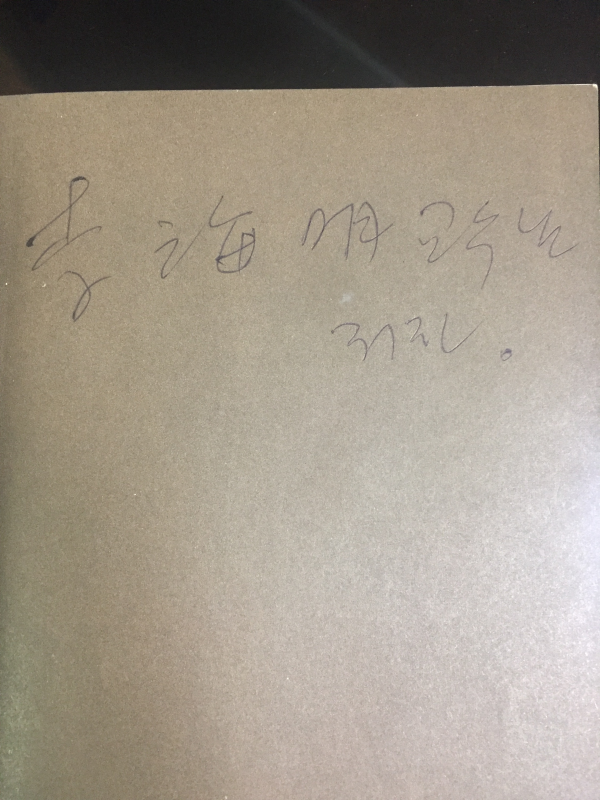 李海明 교수님
저자.